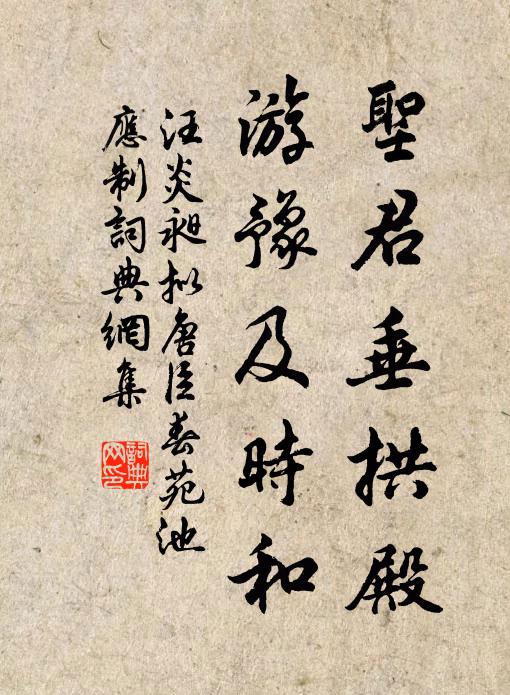 聖君垂拱殿
游豫及時和
汪炎昶拟唐臣春苑池
應制詞典網集
詞典網印